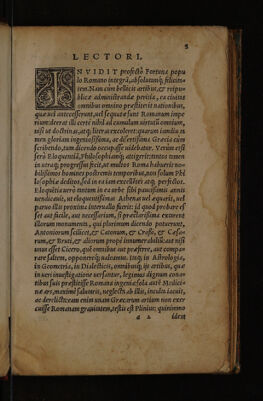 5
LECTORI.
INVIDIT profectò Fortuna popu
lo Romano integrā, absolutamq́; felicita-
tem. Nam cùm bellicis artibus, & reipu-
blicæ administrandæ peritia, ea ciuitas
omnibus omnino præstiterit nationibus,
quæ uel antecesserunt, uel sequutæ sunt Romanum impe-
rium: deerat illi certè nihil ad cumulum
nisi ut doctrinas, atq; literas excoleret: quarum
men gloriam ingeniosissima, ac disertissima Græcia cùm
scribendo, tum dicendo occupasse uidebatur. Verùm etsi
serò Eloquentiā, Philosophiamq́; attigerit: eò tamen
in utraq; progressus fecit, ut multos Roma habuerit no-
bilissimos homines posteris temporibus, non solùm Phi
losophiæ deditos, sed in ea iam excellētes atq; perfectos.
Eloquētiæ uerò tantum in ea urbe sibi
uendicauit, ut eloquentissimas Athenas uel æquarit, uel
paruo illis proximæ interuallo fuerit: id quod probare es
set aut facile, aut necessarium, si præclarissima extarent
illorum monumenta, qui plurimum dicendo potuerunt,
Antoniorum scilicet, & Catonum, & Crassi, & Cæsa-
rum, & Bruti, & aliorum propè innumerabiliū: aut nisi
unus esset Cicero, quē omnibus aut præferre, aut compa-
rare saltem, opponereq́; uideamur. Inq; in Astrologia,
in Geometria, in Dialecticis, omnibusq́; iis artibus, quæ
in ueri inuestigatione uersantur, legimus dignum cona-
tibus suis præstitisse Romana ingenia: sola autē Medici-
næ ars, maximè salutaris, neglecta ab illis, inculta iacuit,
ac derelicta: eam enim unam Græcarum artium non exer
cuisse Romanam grauitatem, testis est Plinius: quinimo
a 2 idem